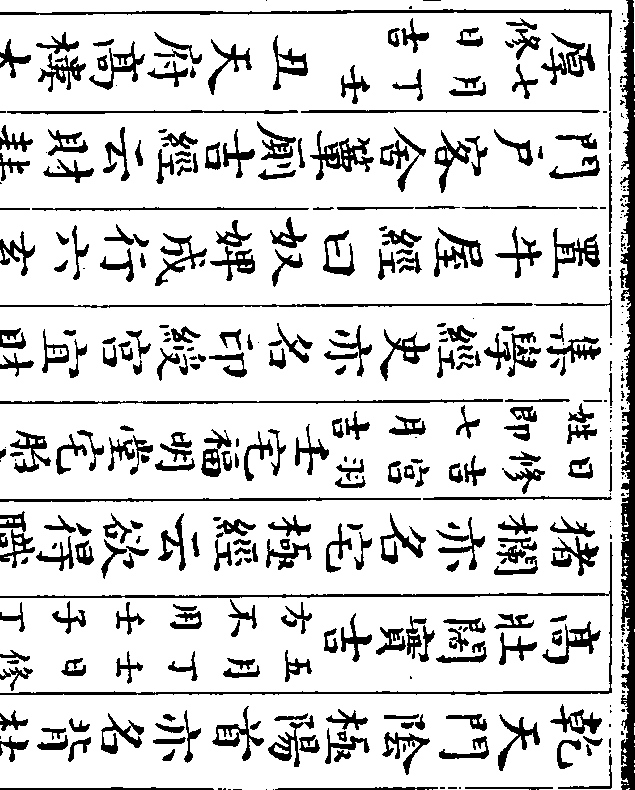 乾天門陰極陽首亦名背枯
高壯闊實吉五月丁壬日修
方不用壬子丁
猪欄亦名宅極經云欲得職
日修吉宮羽
姓即七月吉壬宅福明堂宅胎
集學經史亦名印綬宮宜財
置牛屋經曰奴婢成行六
門戶客舍簟廁吉經云財
厚七月丁壬
修日吉丑天府高樓大